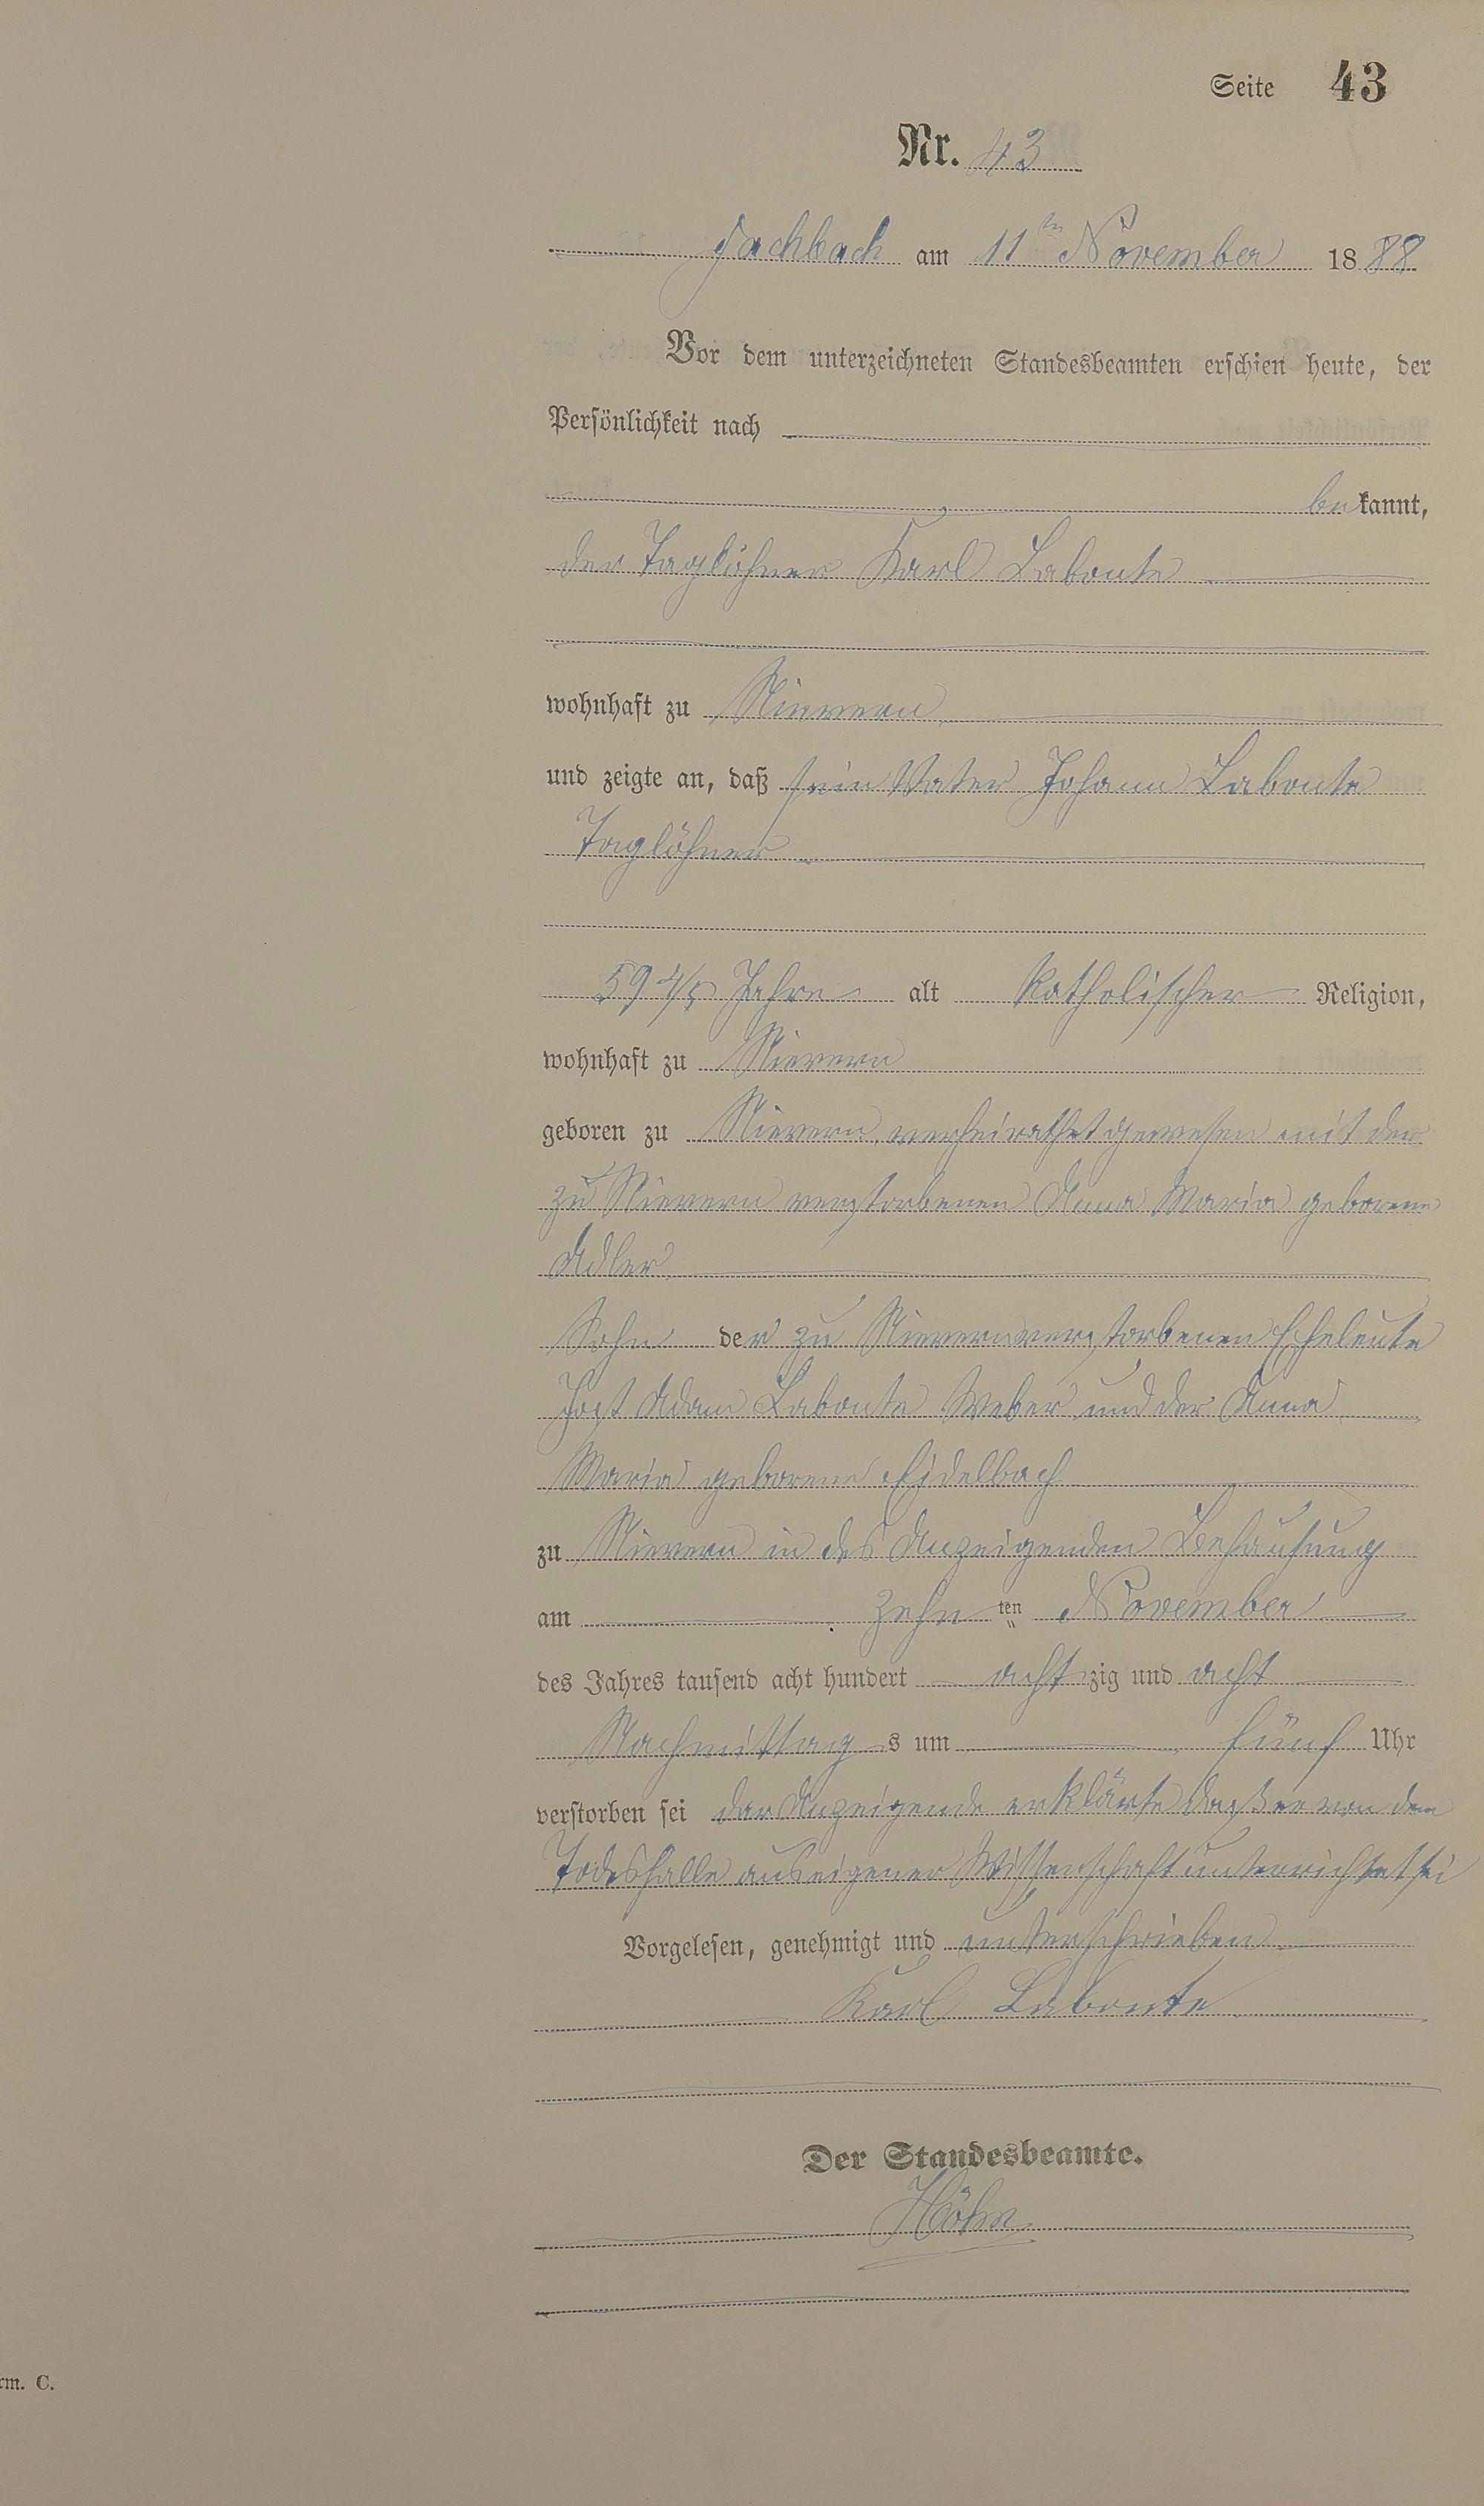 Seite 43
Nr. 43
Fachbach am 11ten November 1888
Vor dem unterzeichneten Standesbeamten erschien heute, der
Persönlichkeit nach
bekannt,
der Taglöhner Karl Labonte
wohnhaft zu Nievern
und zeigte an, daß sein Vater Johann Labonte
Taglöhner
59 4/5 Jahre alt katholischer Religion,
wohnhaft zu Nievern
geboren zu Nievern, verheirathet gewesen mit der
zu Nievern verstorbenen Anna Maria geborene
Adler
Sohn der zu Nievern verstorbenen Eheleute
Jost Adam Labonte Weber und der Anna
Maria geborene Eidelbach
zu Nievern in des Anzeigenden Behausung
am zehnten November
des Jahres tausend acht hundert achtzig und acht
Nachmittags um fünf Uhr
verstorben sei der Anzeigende erklärte daß er von dem
Todesfalle aus eigener Wissenschaft unterrichtet sei
Vorgelesen, genehmigt und unterschrieben
Karl Labonte
Der Standesbeamte.
Höhn
rm. C.